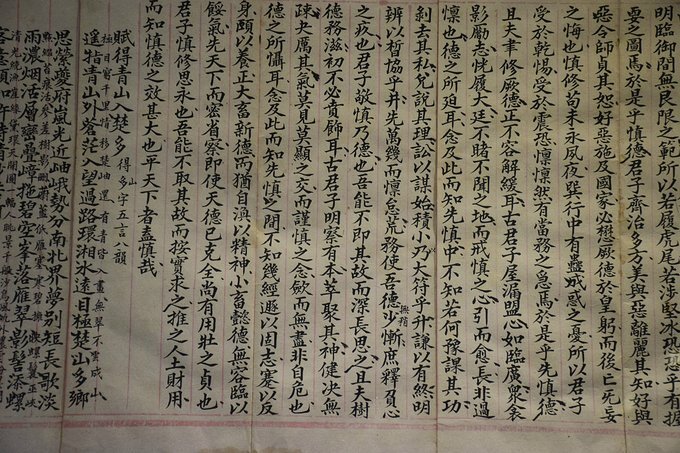 明臨御問無艮限之範所以若履虎尾若涉堅冰恐恐乎有握
要之圖焉於是乎慎德君子齊治多方美與惡離麗其知好與
惡令師貞其恕好惡施及國家必懋厥德於皇躬而後已旡妄
之悔也慎修苟未永夙夜巽行中有蠱惑戚惑之憂所以君子
受於乾惕受於震恐懍懍然有當務之急焉於是乎先慎德
且夫聿修厥德正不容解緩耳古君子屋漏盟心如臨廣眾衾
影勵志恍履大廷不睹不聞之地而戒慎之心引而愈長非過
懍也德之所迫耳念及此而知先慎中不知若何豫課其功
剝去其私兌說其理訟以謀始積小乃大符乎升謙以有終明
辨以晢協乎井先萬幾而懍怠荒務使吾德少慚庶釋負心
撫躬
之疚也君子敬慎乃德也吾能不即其故而深長思之且夫樹
德務滋初不必賁飾耳古君子明察有本萃聚其神健決無
疎夬厲其氣莫見莫顯之交而謹慎之念歛而無盡非自危也
德之所懾耳念及此而知先慎之間不知幾經遯以固志蹇以反
身頤以養正大畜新德而猶自渙以精神小畜懿德無容臨以
餒氣先天下而密省察即使天德已克全尚有用壯之貞也
君子慎修思永也吾能不取其故而按實求之推之人土財用
而知慎德之效甚大也平天下者盍慎哉
賦得青山入楚多 得多字五言八韻
山
極目窮千里情移楚岫還有青皆入畫無翠不常成山
邐牿青山外蒼茫入望過路環湘水遠目極楚山多鄉
思縈夔府嵐光近岫峨勢分南北界夢別短長歌淡
雨濃烟活層巒疊嶂拖碧空峯落雁翠影髻添螺